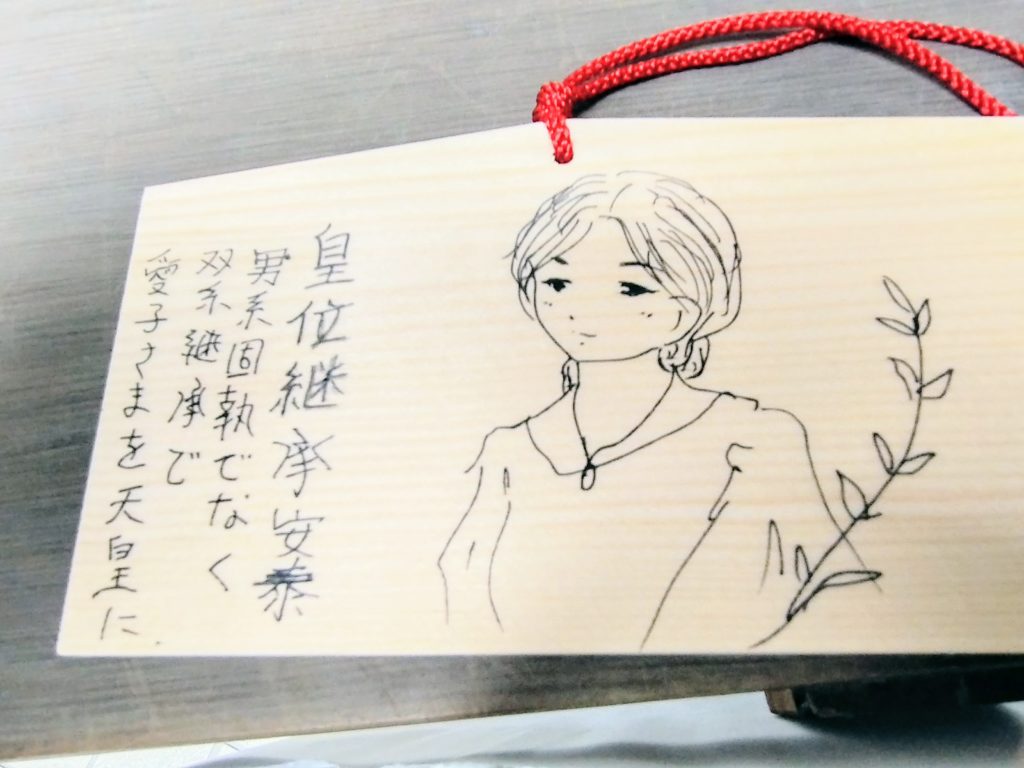 皇位継承安泰
男系固執でなく
双系継承で
愛子さまを天皇に.